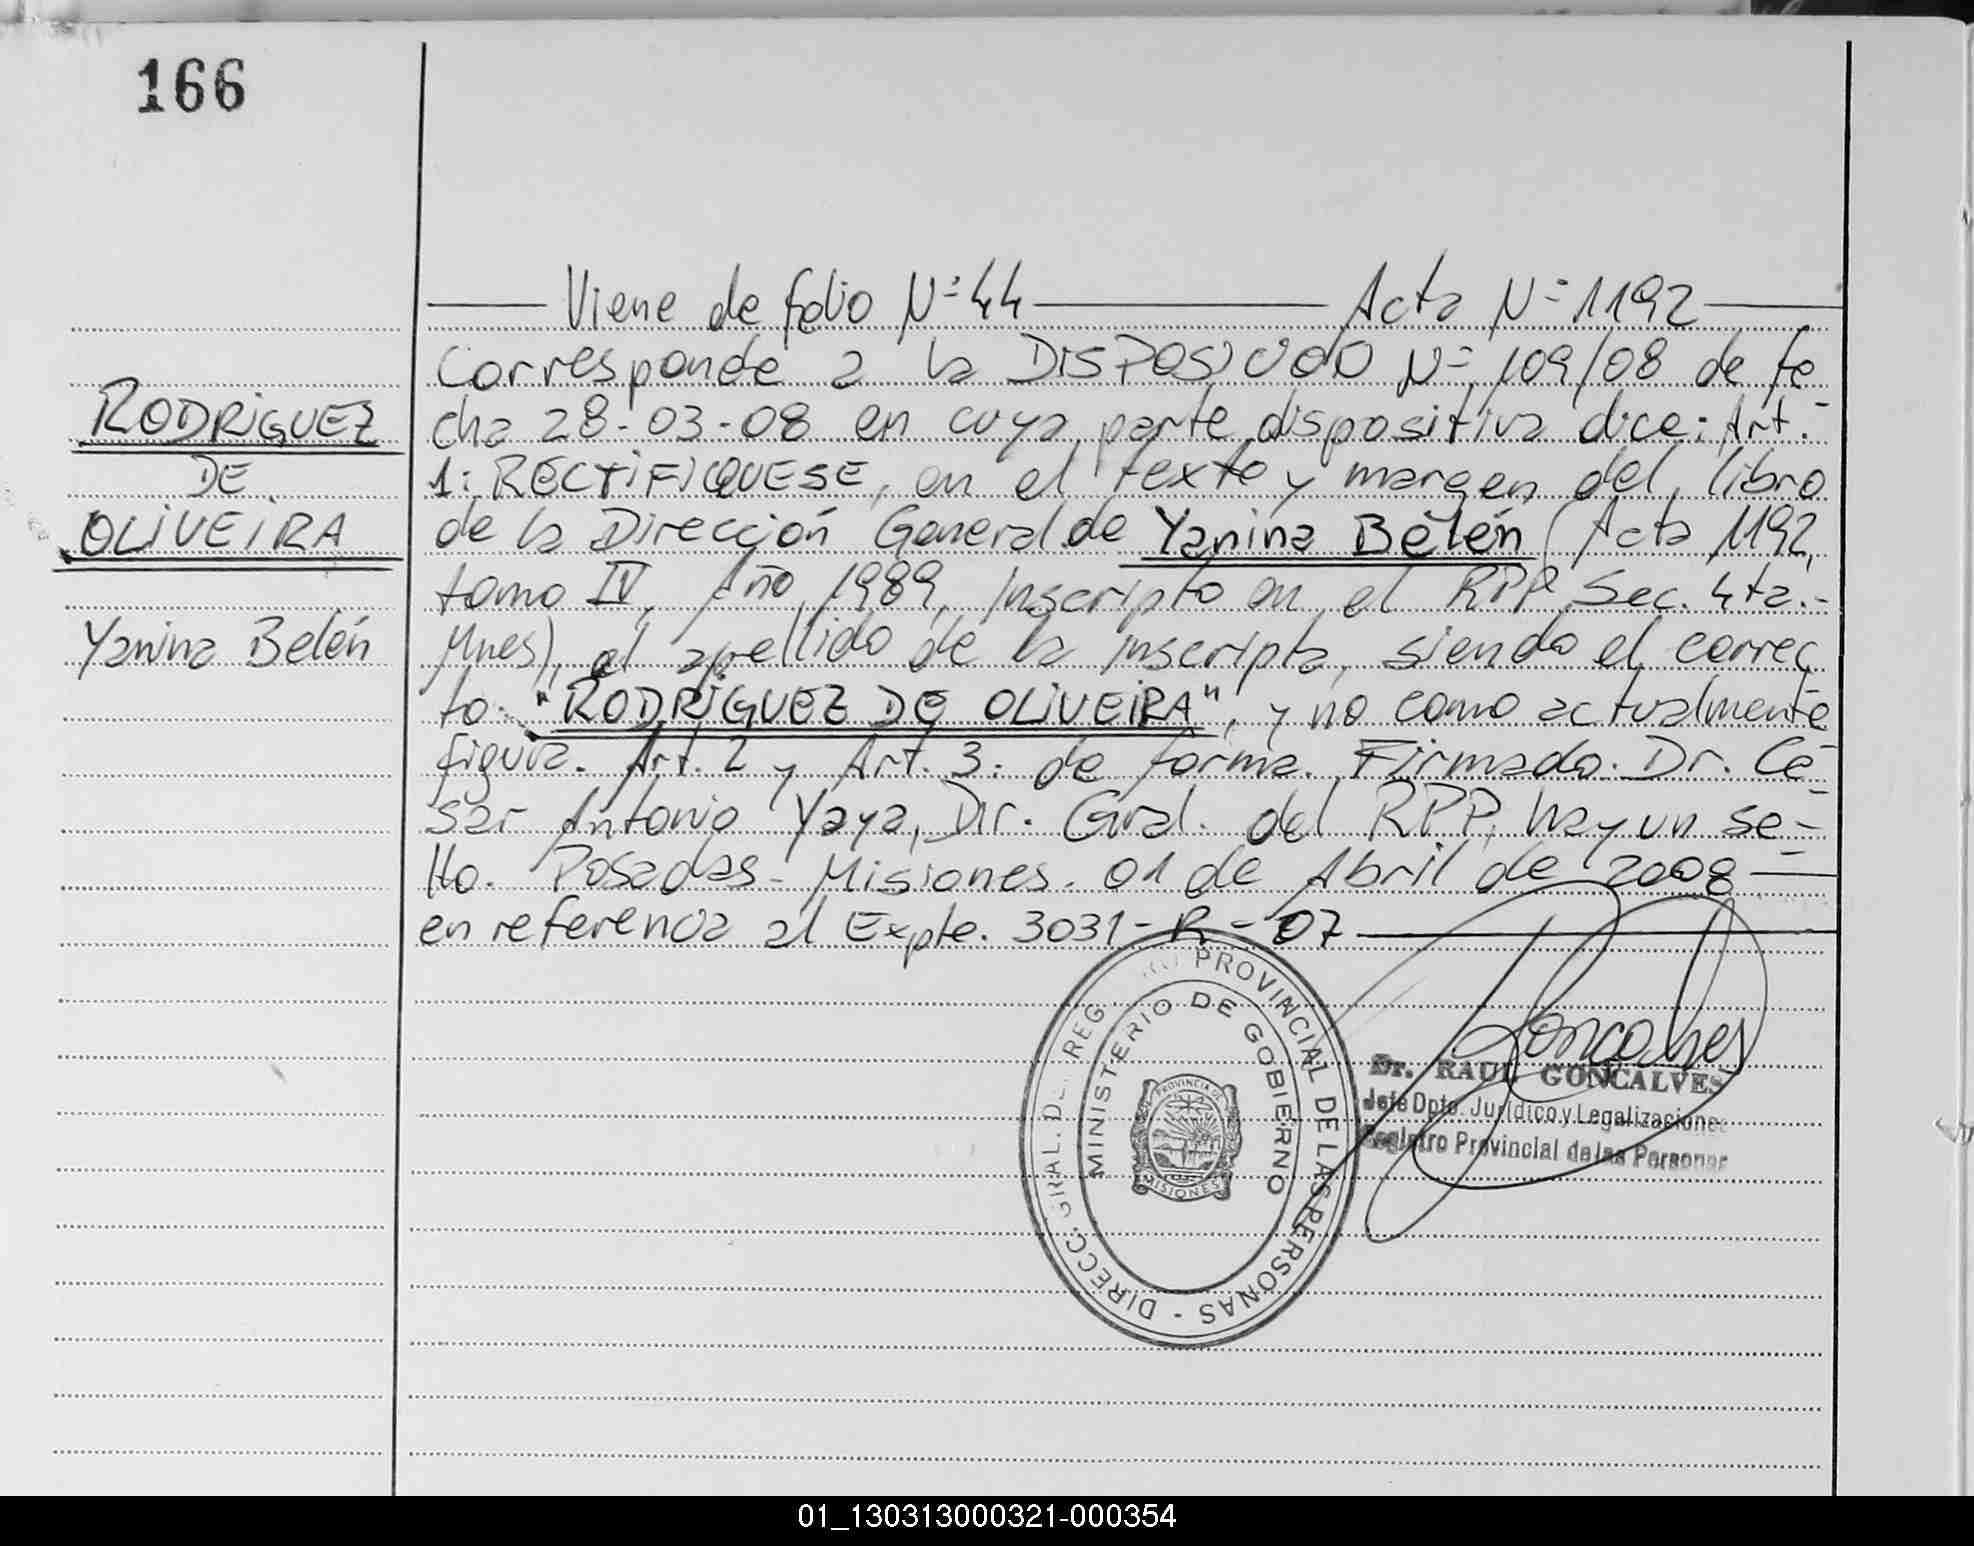 166
Viene de folio Nº 44 Acta Nº 1192
RODRIGUEZ
DE
OLIVEIRA
Yanina Belén
Corresponde a la DISPOSICION Nº 109/08 de fe
cha 28-03-08 en cuya parte dispositiva dice: Art.-
1: RECTIFIQUESE, en el texto y margen del libro
de la Dirección General de Yanina Belén (Acta 1192,
tomo IV, Año 1989, Inscripto en el RPP Sec. 4ta.-
Mnes), el apellido de la inscripta, siendo el correc
to: "RODRIGUEZ DE OLIVEIRA", y no como actualmente
figura. Art. 2 y Art. 3: de forma. Firmado. Dr. Cé-
sar Antonio Yaya, Dir. Gral. del RPP, hay un se-
llo. Posadas - Misiones. 01 de Abril de 2008
en referencia al Expte. 3031-R-07
DIRECC. GRAL. DEL REG PROVINCIAL DE LAS PERSONAS -
MINISTERIO DE GOBIERNO
PROVINCIA DE
MISIONES
Goncalves
Dr. RAUL GONCALVES
Jefe Dpto. Jurídico y Legalizaciones
Registro Provincial de las Personas
01_130313000321-000354